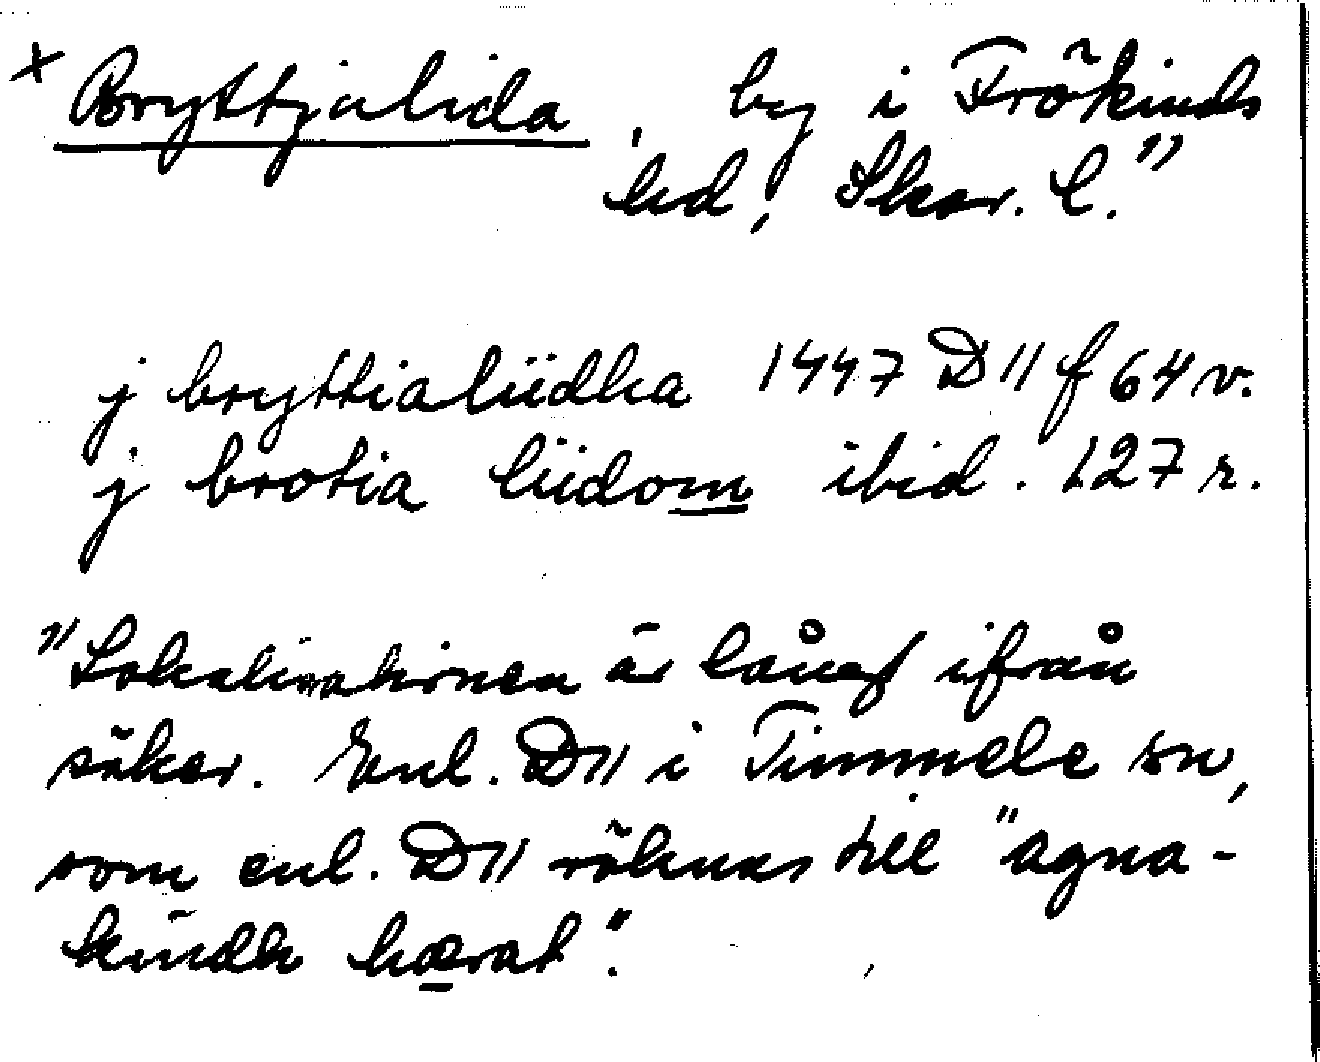 × Bryttjalida, by i Frökinds
hd, Skar. l."
j bryttialiidha 1447 D11 f 64 v.
j brotia liidom ibid. 127 r.
"Lokalisationen är långt ifrån
säker. Enl. D11 i Timmele sn,
som enl. D11 räknas till "agna-
kindh hærat".